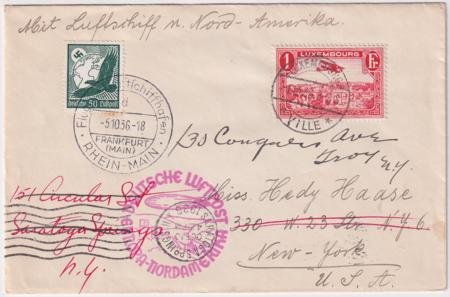 Mit Luftschiff n. Nord-Amerika.
Deutsche 50 Luftpost
LUXEMBOURG
1 Fr
VILLE
Flug- und Luftschiffhafen
-5.10.36-18
FRANKFURT
(MAIN)
RHEIN-MAIN
133 Congress Ave
Troy N.Y.
DEUTSCHE LUFTPOST
EUROPA-NORDAMERIKA
SARATOGA SPRINGS
Miss. Hedy Haase
330 W. 23 Str. N.Y. 6.
New-York
U.S.A.
151 Circular St
Saratoga Springs
N.Y.